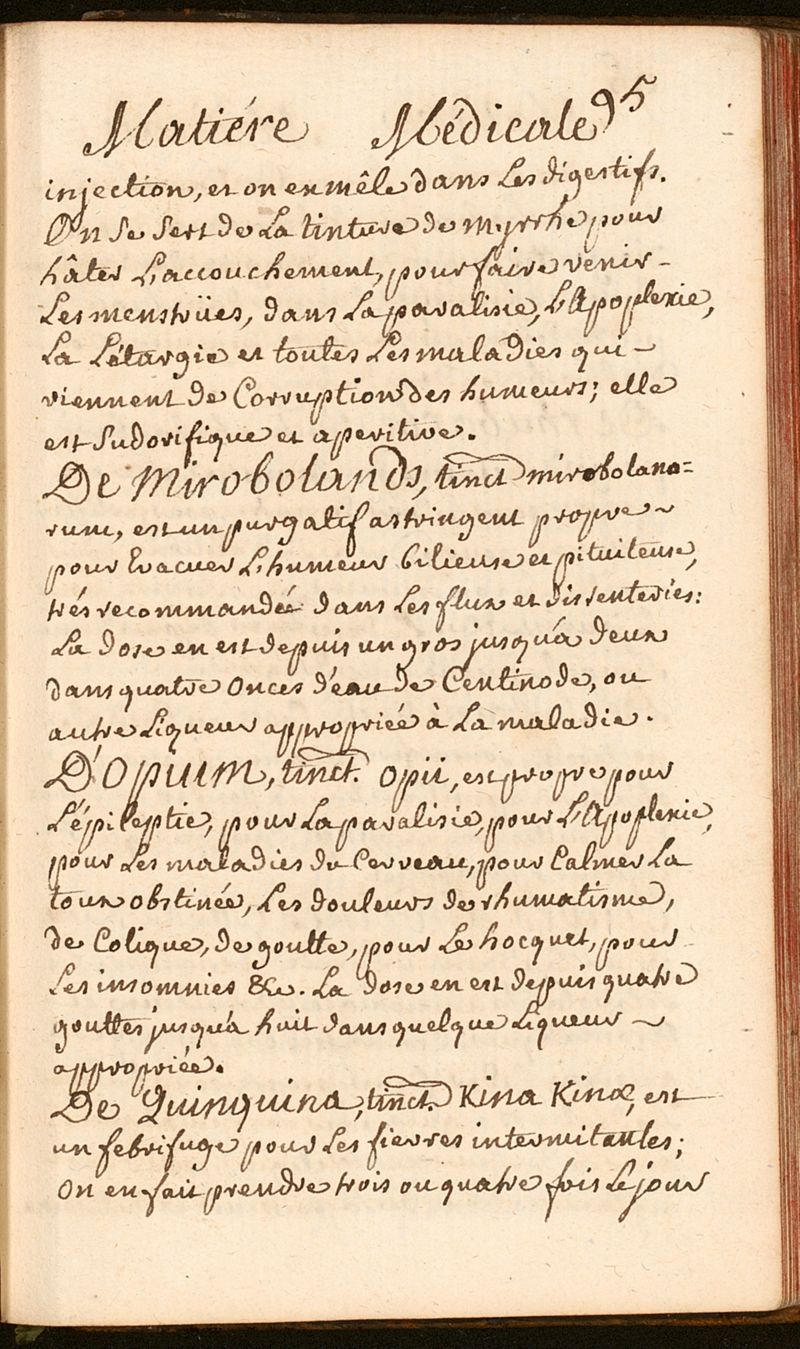 95
Matiére Médicale
injection, et on en mêle dans Les digestifs.
On se sert de La tinture de myrrhe pour
hâter L'accouchement, pour faire venir -
Les menstrües, dans La paralisie, L'Apoplexie,
La Létargie et toutes Les maladies qui -
viennent de Corruption des humeurs; elle
est Sudorifique et aperitive.
De Mirobolands, tinct. mirobolano=
rum, est un purgatif astringent propre ~
pour Evacuer L'humeur bilieuse et pituiteuse,
trés recommandée dans Les flux et dissenteries:
La dose en est depuis un gros jusqu'a deux
dans quatre onces d'eau de Centinode, ou
autre Liqueur appropriée à La maladie.
D'Opium, tinct. Opii, est propre pour
L'épileptie, pour La paralisie, pour L'Apoplexie,
pour Les maladies du Cerveau, pour Calmer La
toux obstinée, Les douleurs de rhumatisme,
de Colique, de goutte, pour Le hocquet, pour
Les insomnies &c. La dose en est depuis quatre
gouttes jusqu'a huit dans quelque Liqueur ~
appropriée.
De Quinquina, tinct. Kina Kinæ, est
un febrifuge pour Les fievres intermitantes;
On en fait prendre trois ou quatre fois Le jour